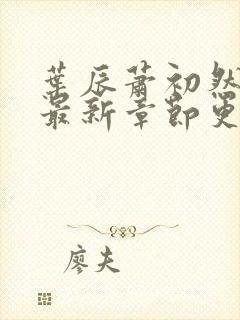 葉辰蕭初然
最新章節更
廖夫